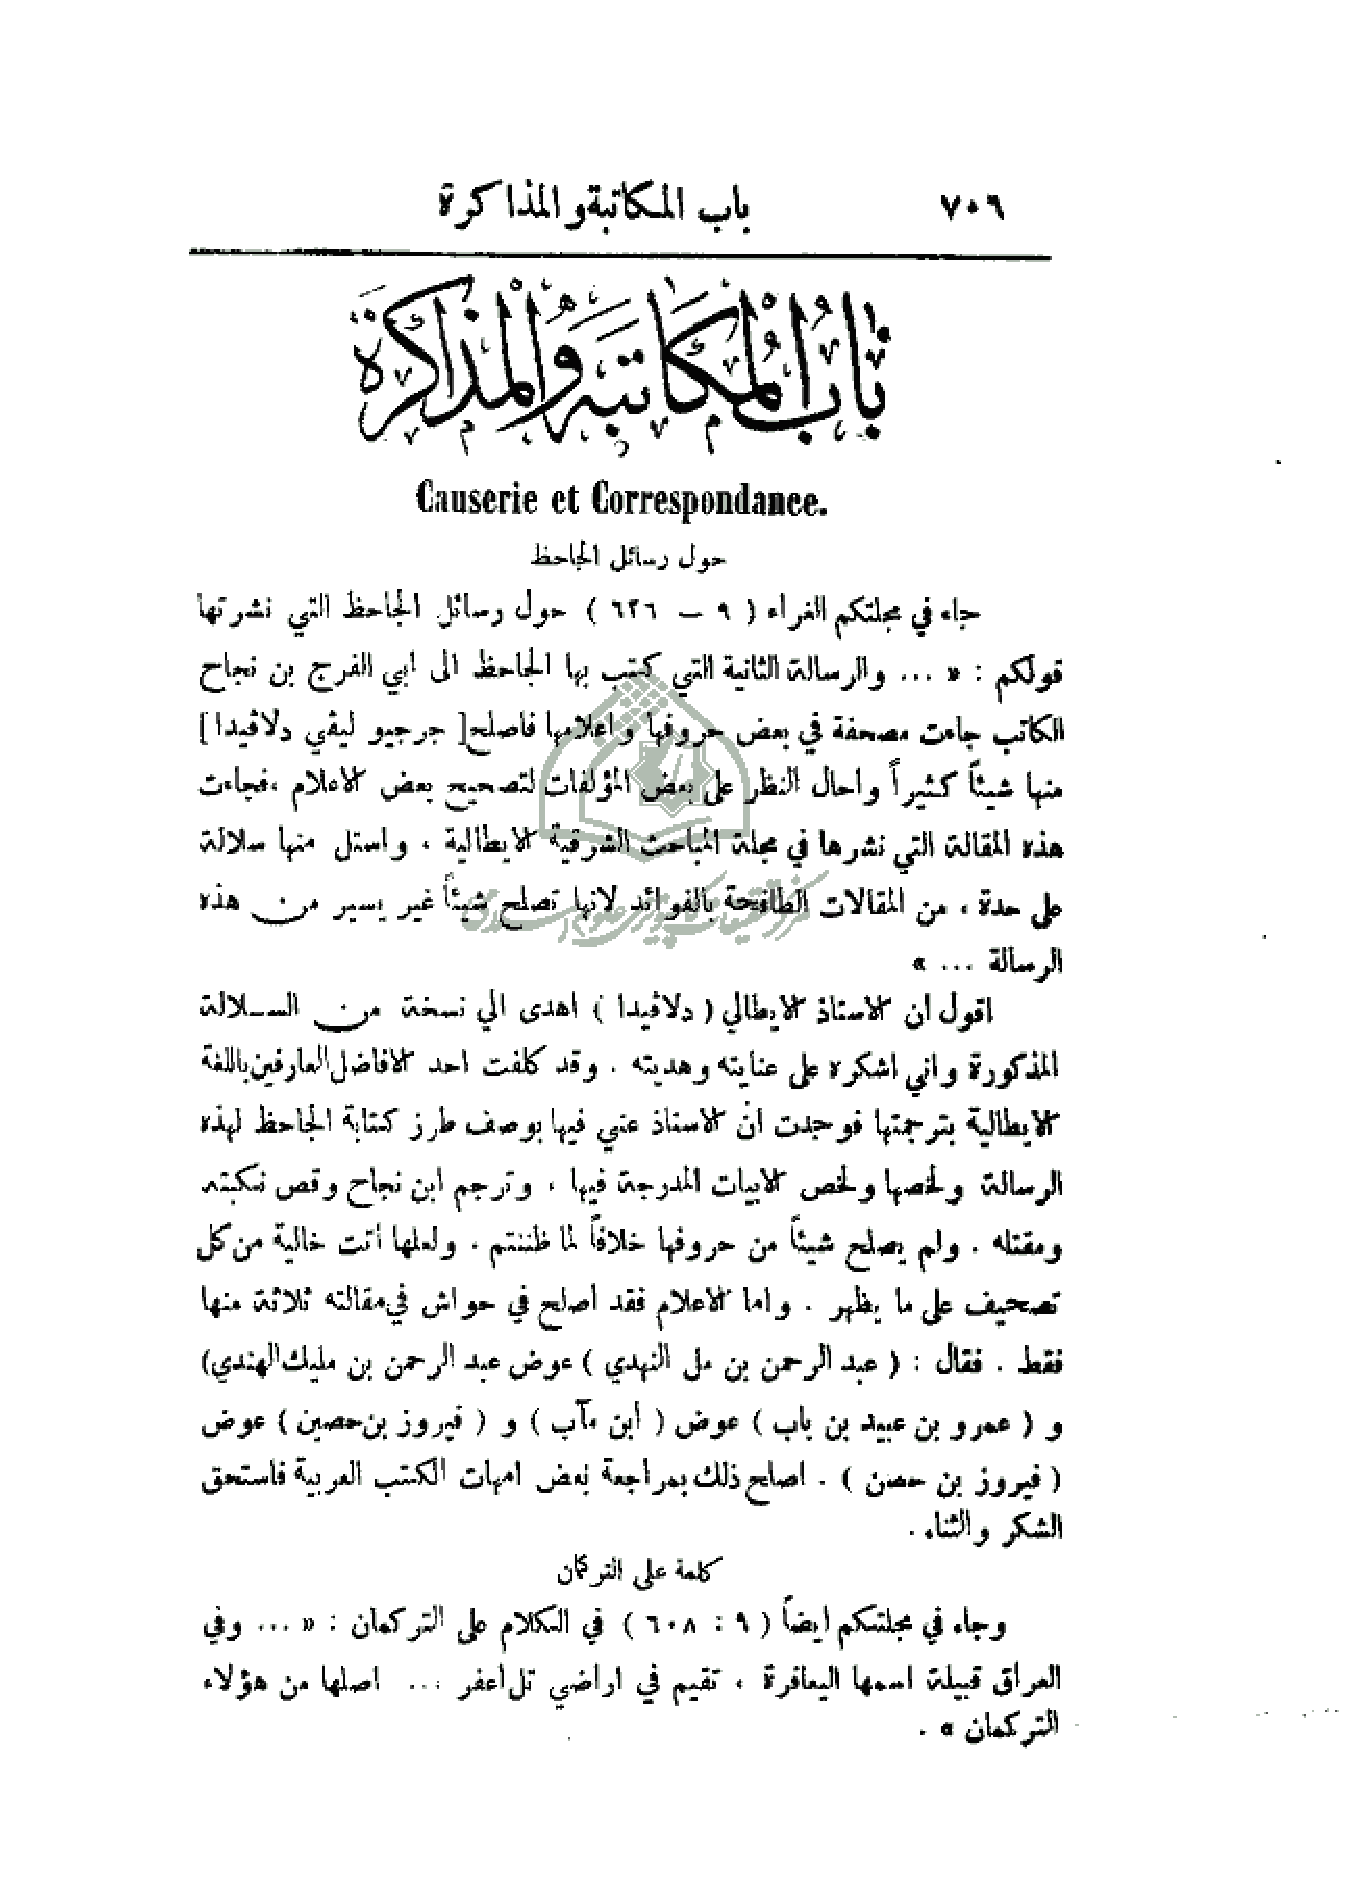 ٧٠٦
باب المكاتبة والمذاكرة
بَابُ المُكَاتَبَةِ وَالمُذَاكَرَةِ
Causerie et Correspondance.
حول رسائل الجاحظ
جاء في مجلتكم الغراء ( ٩ — ٦٢٦ ) حول رسائل الجاحظ التي نشرتها
قولكم : « ... والرسالة الثانية التي كتب بها الجاحظ الى ابي الفرج بن نجاح
الكاتب جاءت مصحفة في بعض حروفها واعلامها فاصلح [ جرجيو ليڤي دلاڤيدا ]
منها شيئاً كثيراً واحال النظر على بعض المؤلفات لتصحيح بعض الاعلام ، فجاءت
هذه المقالة التي نشرها في مجلة المباحث الشرقية الايطالية ، واستل منها سلالة
على حدة ، من المقالات الطافحة بالفوائد لانها تصلح شيئاً غير يسير من هذه
الرسالة ... »
اقول ان الاستاذ الايطالي ( دلاڤيدا ) اهدى الي نسخة من السلالة
المذكورة واني اشكره على عنايته وهديته . وقد كلفت احد الافاضل العارفين باللغة
الايطالية بترجمتها فوجدت ان الاستاذ عني فيها بوصف طرز كتابة الجاحظ لهذه
الرسالة ولخصها ولخص الابيات المدرجة فيها ، وترجم ابن نجاح وقص نكبته
ومقتله . ولم يصلح شيئاً من حروفها خلافاً لما ظننتم ، ولعلها أتت خالية من كل
تصحيف على ما يظهر . واما الاعلام فقد أصلح في حواش في مقالته ثلاثة منها
فقط . فقال : ( عبد الرحمن بن مل النهدي ) عوض عبد الرحمن بن مليك الهندي)
و ( عمرو بن عبيد بن باب ) عوض ( ابن مآب ) و ( فيروز بن حصين ) عوض
( فيروز بن حصن ) . اصلح ذلك بمراجعة بعض امهات الكتب العربية فاستحق
الشكر والثناء .
كلمة على التركمان
وجاء في مجلتكم ايضاً ( ٩ : ٦٠٨ ) في الكلام على التركمان : « ... وفي
العراق قبيلة اسمها اليعافرة ، تقيم في اراضي تل اعفر ... اصلها من هؤلاء
التركمان » .